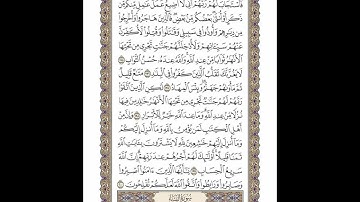 فَٱسْتَجَابَ لَهُمْ رَبُّهُمْ أَنِّي لَآ أُضِيعُ عَمَلَ عَٰمِلٖ مِّنكُم مِّن
ذَكَرٍ أَوْ أُنثَىٰۖ بَعْضُكُم مِّنۢ بَعْضٖۖ فَٱلَّذِينَ هَاجَرُواْ وَأُخْرِجُواْ
مِن دِيَٰرِهِمْ وَأُوذُواْ فِي سَبِيلِي وَقَٰتَلُواْ وَقُتِلُواْ لَأُكَفِّرَنَّ
عَنْهُمْ سَيِّـَٔاتِهِمْ وَلَأُدْخِلَنَّهُمْ جَنَّٰتٖ تَجْرِي مِن تَحْتِهَا
ٱلْأَنْهَٰرُ ثَوَابٗا مِّنْ عِندِ ٱللَّهِۚ وَٱللَّهُ عِندَهُۥ حُسْنُ ٱلثَّوَابِ ١٩٥
لَا يَغُرَّنَّكَ تَقَلُّبُ ٱلَّذِينَ كَفَرُواْ فِي ٱلْبِلَٰدِ ١٩٦ مَتَٰعٞ قَلِيلٞ
ثُمَّ مَأْوَىٰهُمْ جَهَنَّمُۖ وَبِئْسَ ٱلْمِهَادُ ١٩٧ لَٰكِنِ ٱلَّذِينَ ٱتَّقَوْاْ
رَبَّهُمْ لَهُمْ جَنَّٰتٞ تَجْرِي مِن تَحْتِهَا ٱلْأَنْهَٰرُ خَٰلِدِينَ فِيهَا
نُزُلٗا مِّنْ عِندِ ٱللَّهِۗ وَمَا عِندَ ٱللَّهِ خَيْرٞ لِّلْأَبْرَارِ ١٩٨ وَإِنَّ مِنْ
أَهْلِ ٱلْكِتَٰبِ لَمَن يُؤْمِنُ بِٱللَّهِ وَمَآ أُنزِلَ إِلَيْكُمْ
وَمَآ أُنزِلَ إِلَيْهِمْ خَٰشِعِينَ لِلَّهِ لَا يَشْتَرُونَ بِـَٔايَٰتِ ٱللَّهِ
ثَمَنٗا قَلِيلًاۚ أُوْلَٰٓئِكَ لَهُمْ أَجْرُهُمْ عِندَ رَبِّهِمْۗ إِنَّ ٱللَّهَ
سَرِيعُ ٱلْحِسَابِ ١٩٩ يَٰٓأَيُّهَا ٱلَّذِينَ ءَامَنُواْ ٱصْبِرُواْ
وَصَابِرُواْ وَرَابِطُواْ وَٱتَّقُواْ ٱللَّهَ لَعَلَّكُمْ تُفْلِحُونَ ٢٠٠
سُورَةُ النِّسَاءِ